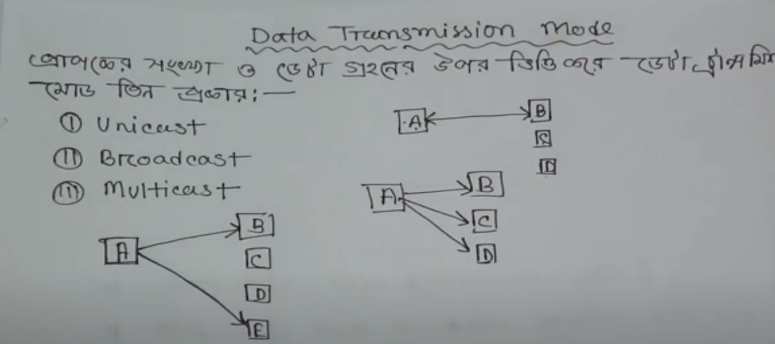 Data Transmission Mode
প্রাপকের সংখ্যা ও ডেটা গ্রহনের উপর ভিত্তি করে ডেটা ট্রান্সমি
মোড তিন প্রকার:—
① Unicast
② Broadcast
③ Multicast
A B
C
D
A B
C
D
A B
C
D
E